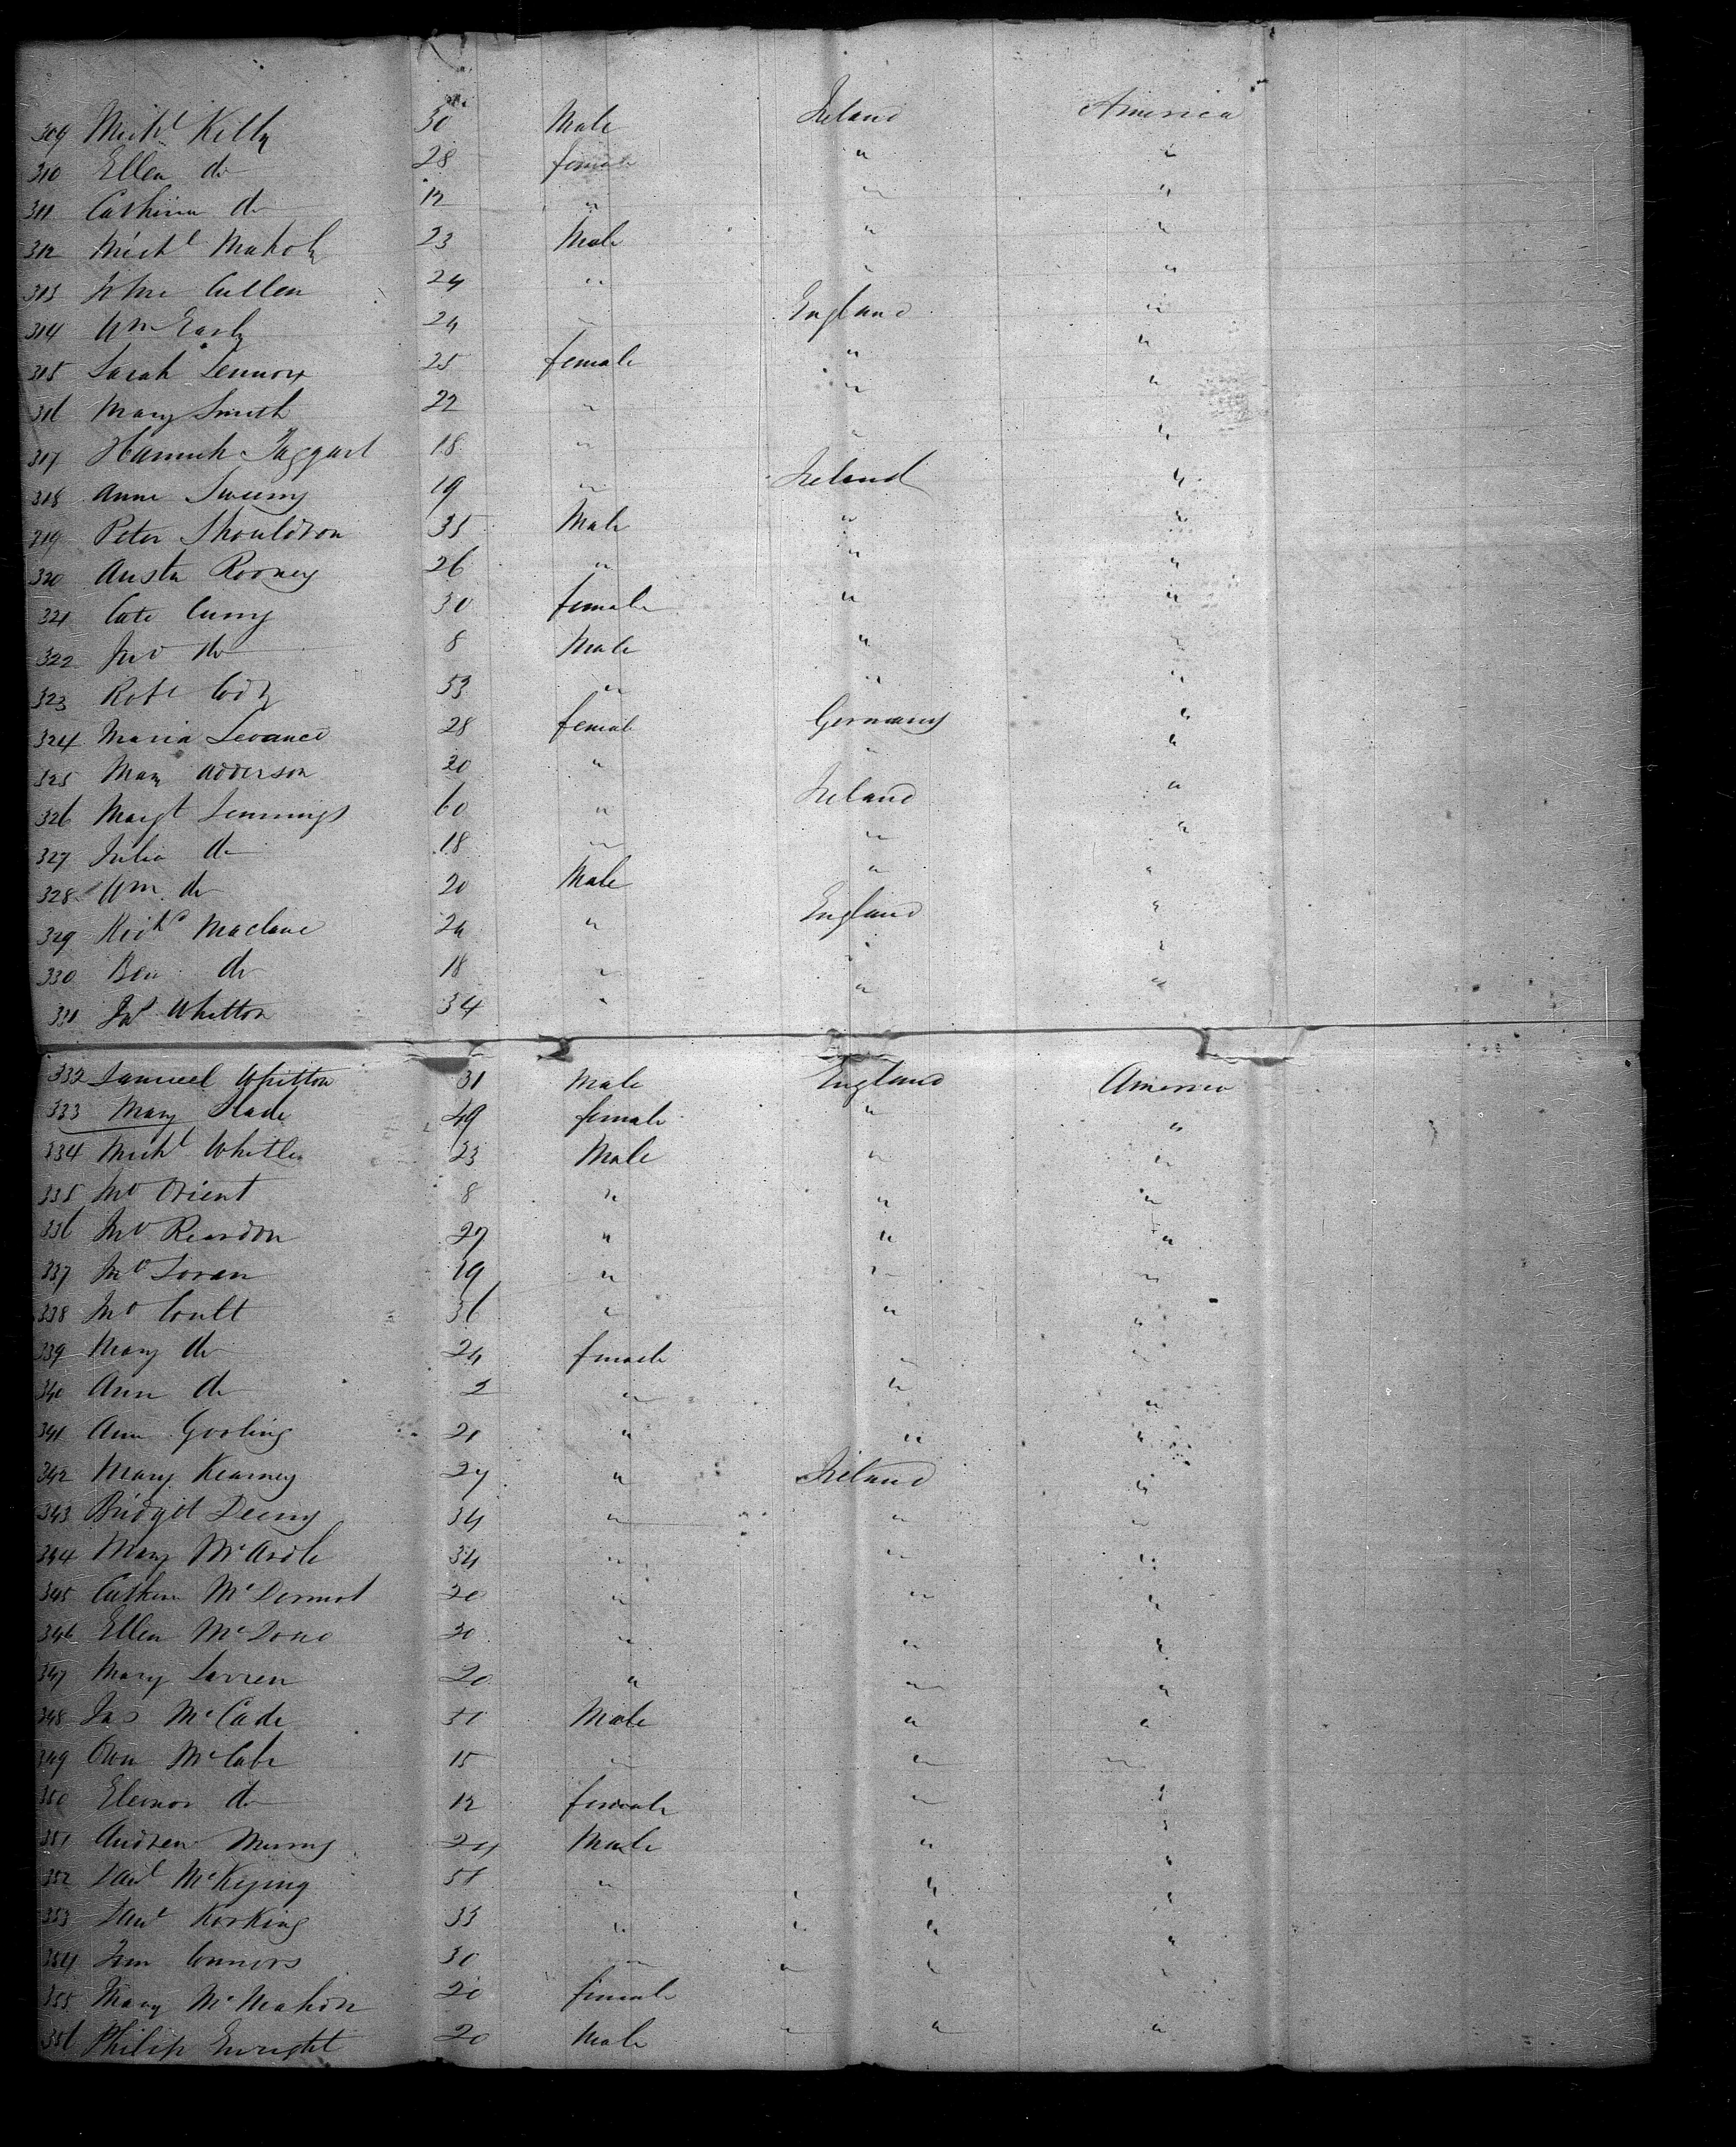 309 Michl Kelly 30 Male Ireland America
310 Ellen do 28 female " "
311 Catherine do 12 " " "
312 Michl 23 Male " "
313 Cullen 24 " " "
314 Wm Early 24 " England "
315 Sarah Lennox 25 female " "
316 Mary Smith 22 " " "
317 Hannah Taggart 18 " " "
318 Anne Sweeny 19 " Ireland "
319 Peter Shouldron 35 Male " "
320 Rooney 26 " " "
321 Cate Curry 30 female " "
322 Jno do 8 Male " "
323 Robt Cody 53 " " "
324 Maria 28 female Germany "
325 Mary Adderson 20 " " "
326 Margt Jennings 60 " Ireland "
327 Julia do 18 " " "
328 Wm do 20 Male " "
329 Richd Maclane 24 " England "
330 Ben do 18 " " "
331 Whitton 34 " " "
332 Samuel Whitton 31 Male England America
333 Mary Slade 49 female " "
334 Michl 23 Male " "
335 Jno Orient 8 " " "
336 Jno Reardon 27 " " "
337 Jno 19 " " "
338 Jno Coult 36 " " "
339 Mary do 24 female " "
340 Ann do 2 " " "
341 Ann Gooling 21 " " "
342 Mary Kearney 27 " Ireland "
343 Bridget 34 " " "
344 Mary McArdle 34 " " "
345 McDermot 20 " " "
346 Ellen 30 " " "
347 Mary 20 " " "
348 Jas McCade Male " "
349 Own McCabe 15 " " "
350 Eleinor do 12 female " "
351 Andrew Murray 24 Male " "
352 Danl " " "
353 33 " " "
354 Connors 30 " " "
355 Mary McMahon 20 female
356 Philip Enright 20 Male " "